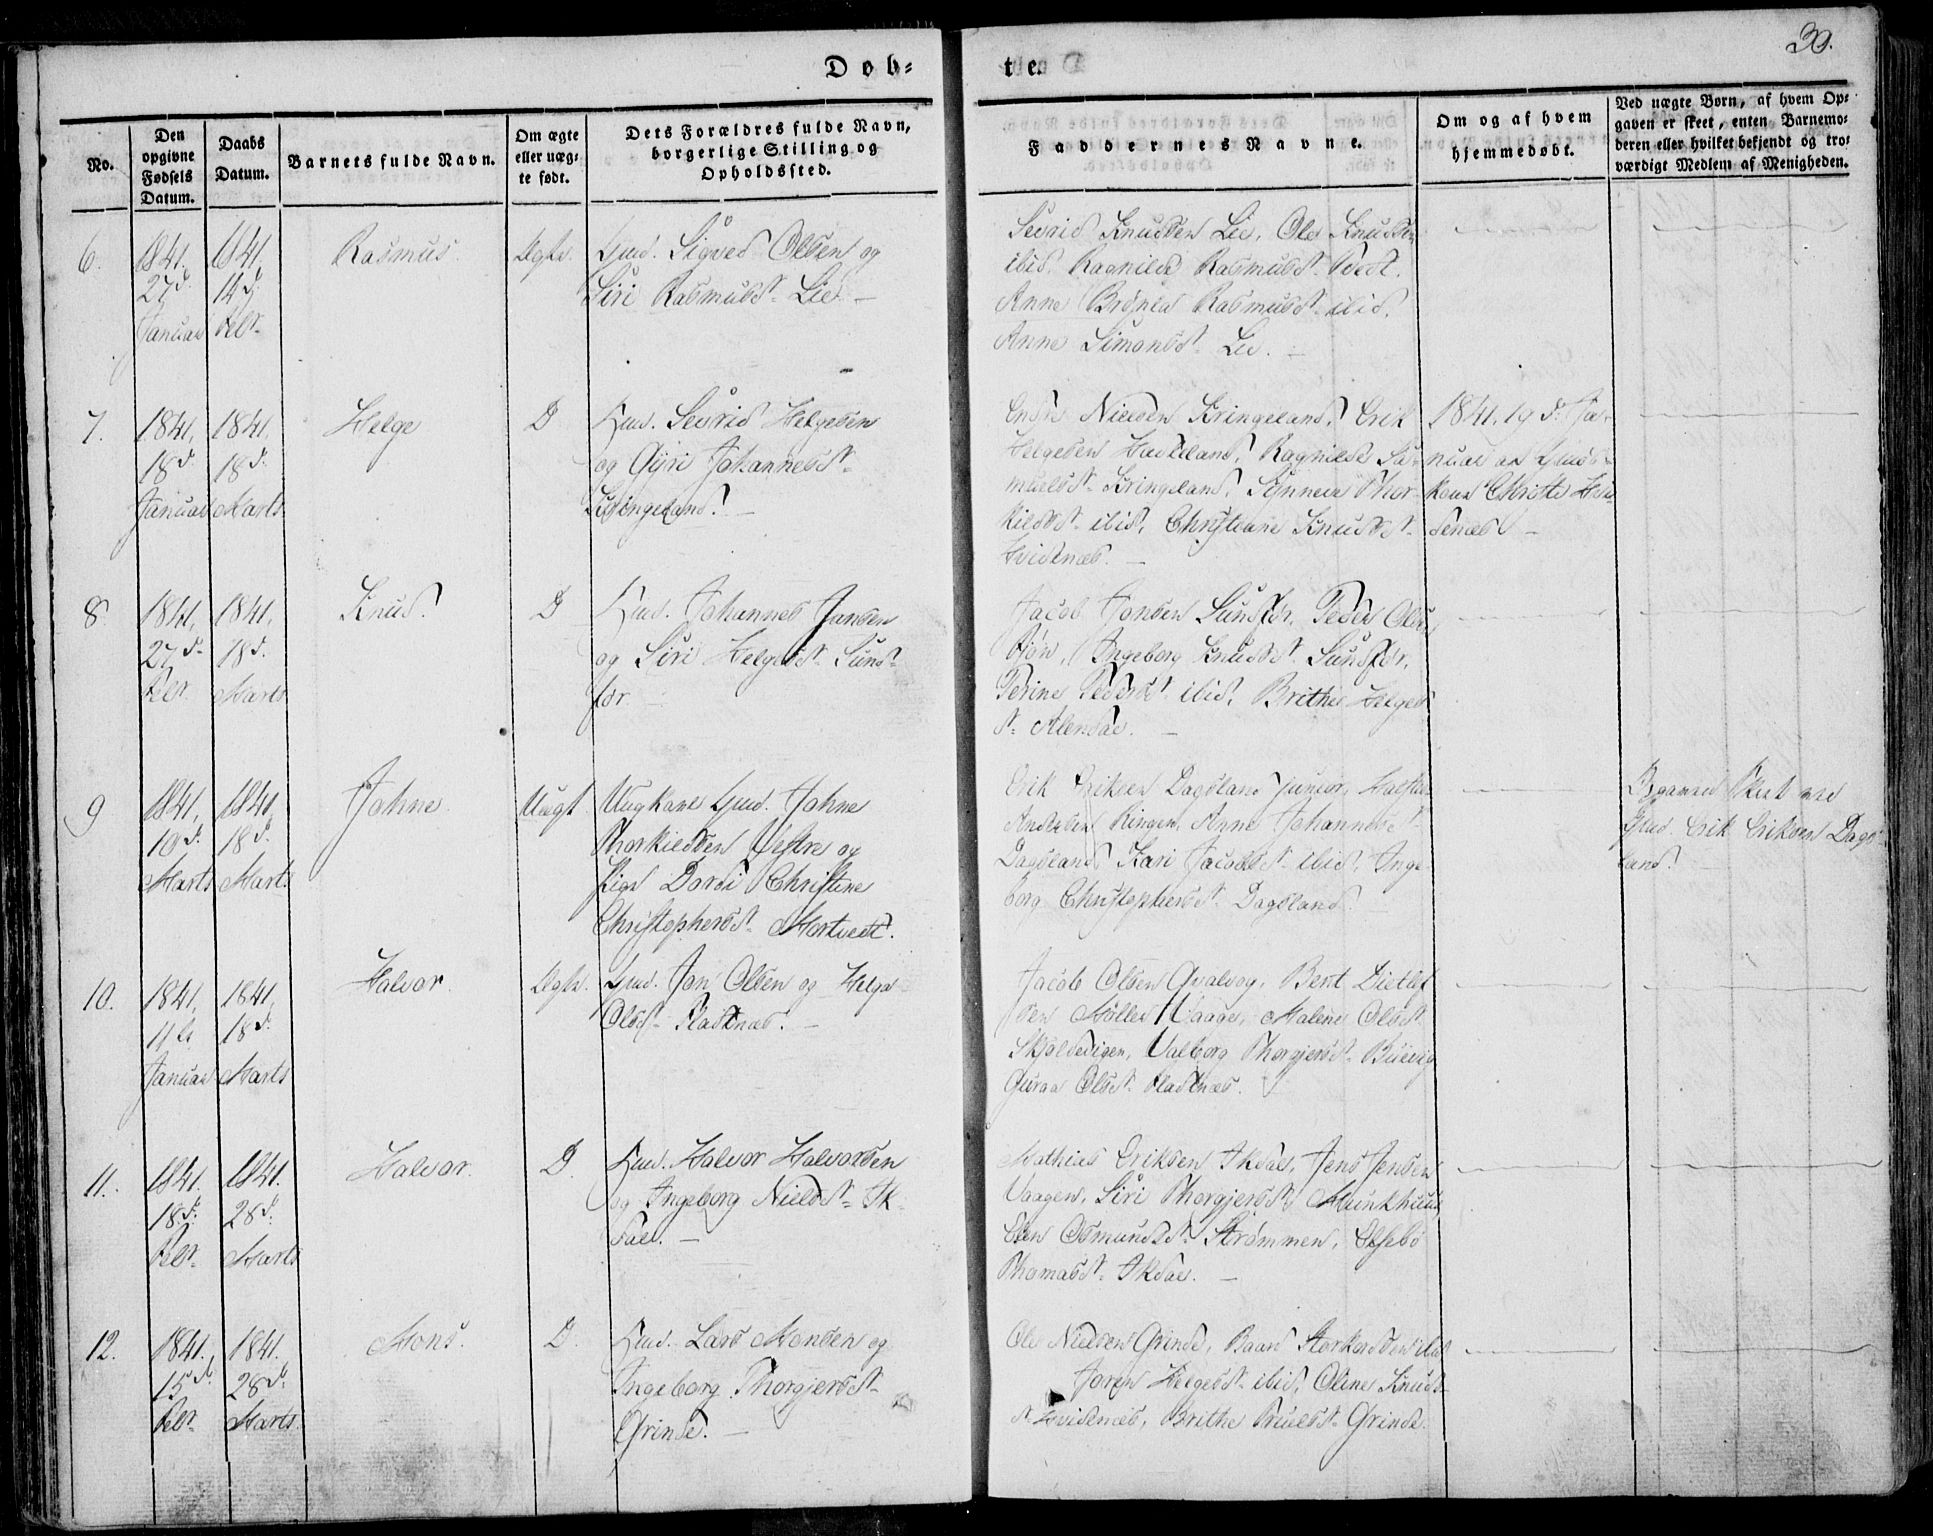 Døb-
te.
30.
No.
Den opgivne Fødsels Datum.
Daabs Datum.
Barnets fulde Navn.
Om ægte eller uæg-te født.
Dets Forældres fulde Navn, borgerlige Stilling og Opholdssted.
Faddernes Navne.
Om og af hvem hjemmedøbt.
Ved uægte Børn, af hvem Op-
gaven er skeet, enten Barnemo-
deren eller hvilket bekjendt og tro-
værdigt Medlem af Menigheden.
6.
1841. 27d. Januar
1841. 14d. Febr.
Rasmus.
Ægte.
Gmd. Sigved Olsen og
Siri Rasmusd. Lie. —
Sevrid Knudsen Lie, Ole Knudsen
ibid. Ragnilde Rasmusd. Tvedt.
Anne Rasmusd. ibid.
Anne Simonsd. Lie. —
7.
1841, 18d. Januar
1841. 18d. Marts
Helge
D
Gmd. Sevrid Helgesen
og Gyri Johannesd.
Kringeland. —
Endre Nielsen Kringeland, Erik
Helgesen Ragnilde Sa-
muelsd. Kringeland, Synneve Thor-
kildsd. ibid, Christiane Knudsd.
Hvidnæs. —
1841. 19d. Ja-
nuar af
Christi
denæs —
8.
1841, 27d. Febr.
1841, 18d. Marts
Knud.
D
Gmd. Johannes Jansen
og Siri Helgesd. Sund-
før —
Jacob Jonsen Sundfør, Peder Olsen
Ingeborg Knudsd. Sundfør,
Perine Pedersd. ibid, Brithe Helges
d. —
9
1841, 10d. Marts
1841 18d. Marts
Johne.
Uægt.
Ungkarl Gmd. Johne
Thorkildsen og
Pige Dordi Christine
Christophersd. Mortvedt.
Erik Eriksen Dagsland junior,
Andersen Ringen, Anne Johannesd.
Dagsland, Kari Jacobsd. ibid, Inge-
borg Christophersd. Dagsland.
Opgaven skeet ved
Gmd. Erik Eriksen Dags-
land.
10.
1841, 11te Januar
1841, 18d. Marts
Halvor.
Ægte.
Gmd. Jon Olsen og Helga
Olsd. Fladnæs. —
Jacob Olsen Qvalvog, Bent Ditlef
sen Møller Vaage, Malene Olsd.
Valborg Thorgjersd.
Guroe Olsd. Fladnæs.
11.
1841. 18d. Febr.
1841. 28d. Marts
Halvor.
D.
Gmd. Halvor Halvorsen
og Ingeborg Nielsd. Ak-
sdal. —
Mathias Eriksen Aksdal, Jens Jensen
Vaagen, Siri Thorgjersd. Munkhuus,
Elen Osmundsd. Strømmen, Elsebø
Thomasd. Aksdal. —
12.
1841. 15d. Febr.
1841. 28d. Marts.
Mons.
D.
Gmd. Lars Monsen og
Ingeborg Thorgjersd.
Grinde. —
Ole Nielsen Grinde, Baar Storkorsen ibid
Joren Helgesd. ibid, Oline Knuds
d. Hvidnæs, Brithe Grinde.